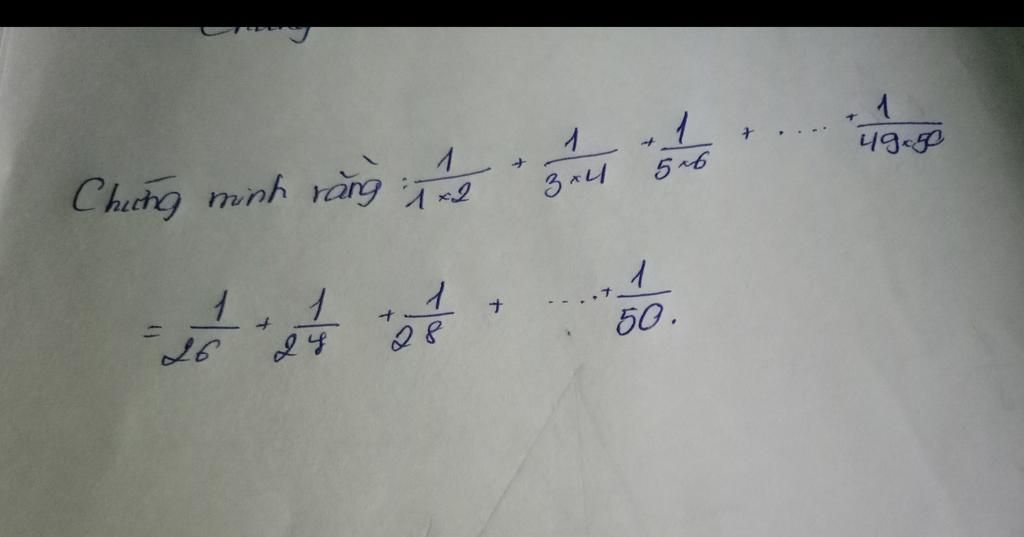 Chứng minh rằng: 1/(1×2) + 1/(3×4) + 1/(5×6) + .... + 1/(49×50)
= 1/26 + 1/27 + 1/28 + .... + 1/50.